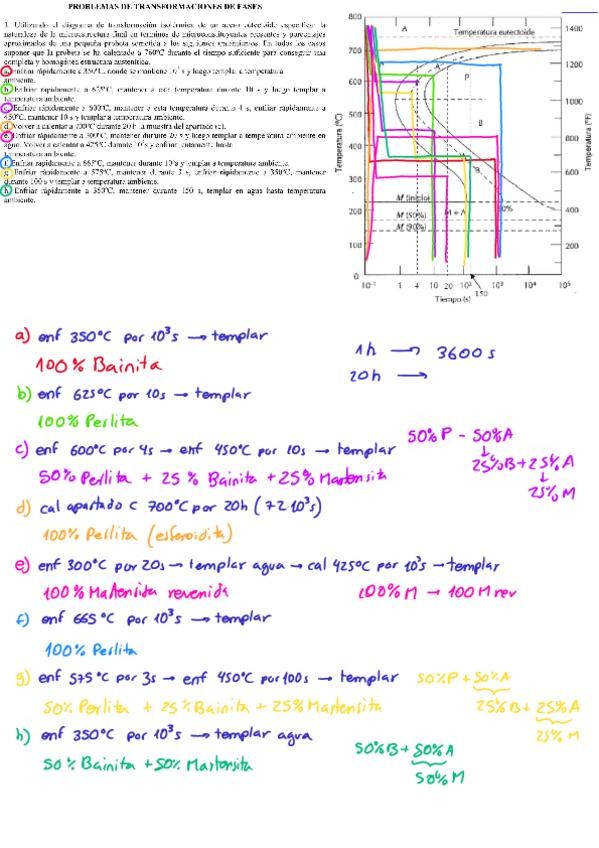 PROBLEMAS DE TRANSFORMACIONES DE FASES
1. Utilizando el diagrama de transformación isotérmica de un acero eutectoide especificar la
naturaleza de la microestructura final en términos de microconstituyentes presentes y porcentajes
aproximados de una pequeña probeta sometida a los siguientes tratamientos. En todos los casos
suponer que la probeta se ha calentado a 760°C durante el tiempo suficiente para conseguir una
completa y homogénea estructura austenítica.
a. Enfriar rápidamente a 350°C, donde se mantiene 10³ s y luego templar a temperatura
ambiente.
b. Enfriar rápidamente a 625°C, mantener a esta temperatura durante 10 s y luego templar a
temperatura ambiente.
c. Enfriar rápidamente a 600°C, mantener a esta temperatura durante 4 s, enfriar rápidamente a
450°C, mantener 10 s y templar a temperatura ambiente.
d. Volver a calentar a 700°C durante 20 h la muestra del apartado (c).
e. Enfriar rápidamente a 300°C, mantener durante 20 s y luego templar a temperatura ambiente en
agua. Volver a calentar a 425°C durante 10³ s y enfriar lentamente hasta
temperatura ambiente.
f. Enfriar rápidamente a 665°C, mantener durante 10³ s y templar a temperatura ambiente.
g. Enfriar rápidamente a 575°C, mantener durante 3 s, enfriar rápidamente a 350°C, mantener
durante 100 s y templar a temperatura ambiente.
h. Enfriar rápidamente a 350°C, mantener durante 150 s, templar en agua hasta temperatura
ambiente.
800
700
600
500
400
300
200
100
0
Temperatura (°C)
1400
1200
1000
800
600
400
200
Temperatura (°F)
A
Temperatura eutectoide
P
B
B
M (inicio)
M + A
50%
M (50%)
M (90%)
10⁻¹ 1 4 10 20 10² 10³ 10⁴ 10⁵
150
Tiempo (s)
a) enf 350°C por 10³s → templar
100% Bainita
1h → 3600 s
20h →
b) enf 625°C por 10s → templar
100% Perlita
c) enf 600°C por 4s → enf 450°C por 10s → templar
50% Perlita + 25% Bainita + 25% Martensita
50% P - 50% A
↓
25%B + 25% A
↓
25% M
d) cal apartado c 700°C por 20h (72 10³s)
100% Perlita (esferoidita)
e) enf 300°C por 20s → templar agua → cal 425°C por 10³s → templar
100% Martensita revenida
100% M → 100 M rev
f) enf 665°C por 10³s → templar
100% Perlita
g) enf 575°C por 3s → enf 450°C por 100s → templar
50% P + 50% A
50% Perlita + 25% Bainita + 25% Martensita
25% B + 25% A
25% M
h) enf 350°C por 10³s → templar agua
50% Bainita + 50% Martensita
50% B + 50% A
50% M